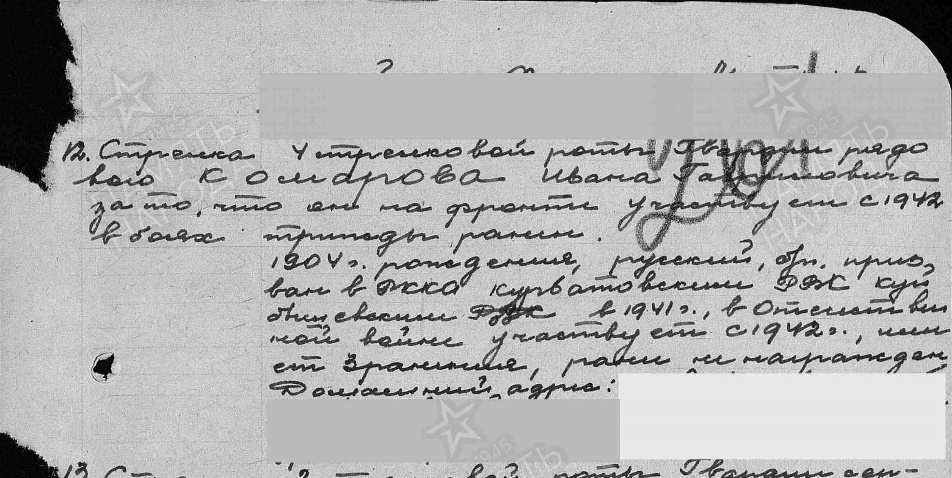 12. Стрелка 4 стрелковой роты Гвардии рядо
вого Комарова Ивана Гавриловича
за то, что он на фронте участвует с 1942
в боях трижды ранен.
1904 г. рождения, русский, б/п. приз
ван в РККА Курбатовским РВК Куй
бышевским РВК в 1941 г., в Отечествен
ной войне участвует с 1942 г., име
ет 3 ранения, ранее не награжден
Домашний адрес:
13. роты Гвардии